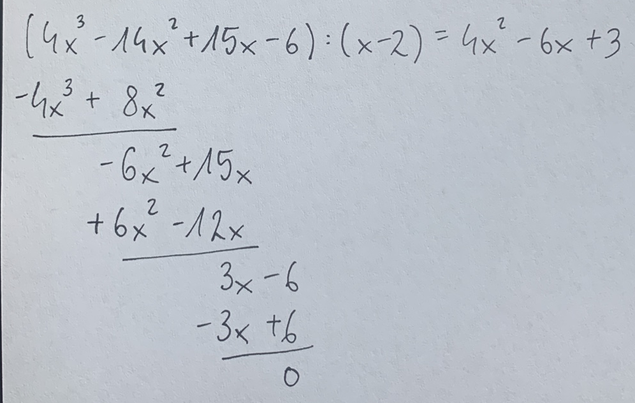 (4x³ - 14x² + 15x - 6) : (x - 2) = 4x² - 6x + 3
-4x³ + 8x²
-6x² + 15x
+6x² - 12x
3x - 6
-3x + 6
0